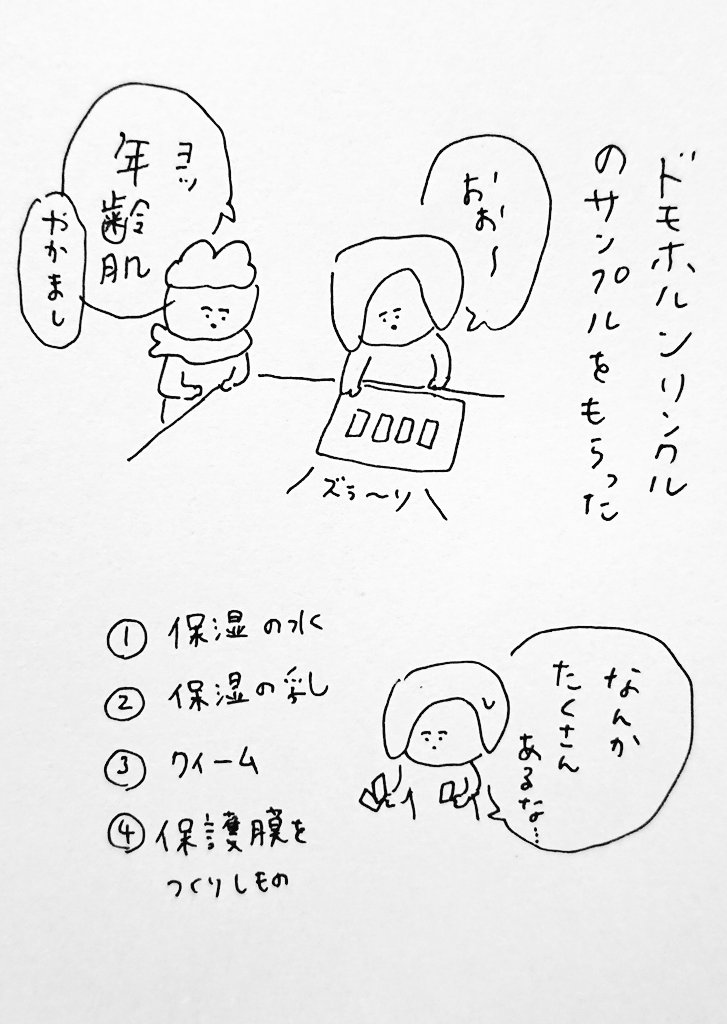 ドモホルンリンクル
のサンプルをもらった
おぉ〜
ヨッ
年齢肌
やかまし
ズラ〜リ
なんか
たくさん
あるな…
① 保湿の水
② 保湿の乳
③ クィーム
④ 保護膜を
つくりしもの